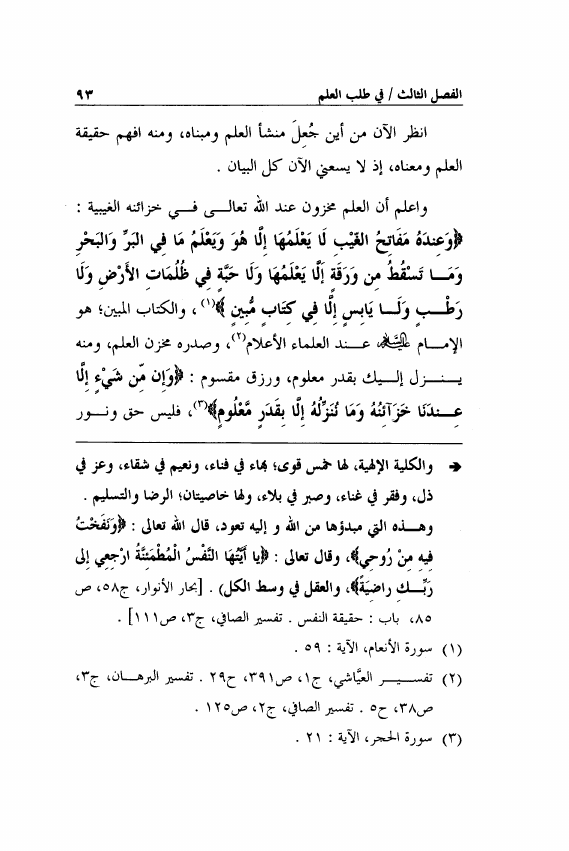 الفصل الثالث / في طلب العلم ٩٣
انظر الآن من أين جُعِلَ منشأ العلم ومبناه، ومنه افهم حقيقة
العلم ومعناه، إذ لا يسعني الآن كل البيان .
واعلم أن العلم مخزون عند الله تعالى في خزائنه الغيبية :
﴿وَعِندَهُ مَفَاتِحُ الغَيْبِ لَا يَعْلَمُهَا إِلَّا هُوَ وَيَعْلَمُ مَا فِي البَرِّ وَالبَحْرِ
وَمَا تَسْقُطُ مِن وَرَقَةٍ إِلَّا يَعْلَمُهَا وَلَا حَبَّةٍ فِي ظُلُمَاتِ الأَرْضِ وَلَا
رَطْبٍ وَلَا يَابِسٍ إِلَّا فِي كِتَابٍ مُّبِينٍ﴾(١)، والكتاب المبين؛ هو
الإمام عليه السلام عند العلماء الأعلام(٢)، وصدره مخزن العلم، ومنه
ينزل إليك بقدر معلوم، ورزق مقسوم : ﴿وَإِن مِّن شَيْءٍ إِلَّا
عِندَنَا خَزَآئِنُهُ وَمَا نُنَزِّلُهُ إِلَّا بِقَدَرٍ مَّعْلُومٍ﴾(٣)، فليس حق ونور
➔ والكلية الإلهية، لها خمس قوى؛ بهاء في فناء، ونعيم في شقاء، وعز في
ذل، وفقر في غناء، وصبر في بلاء، ولها خاصيتان؛ الرضا والتسليم .
وهذه التي مبدؤها من الله و إليه تعود، قال الله تعالى : ﴿وَنَفَخْتُ
فِيهِ مِنْ رُوحِي﴾، وقال تعالى : ﴿يا أَيَّتُهَا النَّفْسُ الْمُطْمَئِنَّةُ ارْجِعِي إِلى
رَبِّكِ راضِيَةً﴾، والعقل في وسط الكل) . [بحار الأنوار، ج٥٨، ص
٨٥، باب : حقيقة النفس . تفسير الصافي، ج٣، ص١١١] .
(١) سورة الأنعام، الآية : ٥٩ .
(٢) تفسير العيَّاشي، ج١، ص٣٩١، ح٢٩ . تفسير البرهان، ج٣،
ص٣٨، ح٥ . تفسير الصافي، ج٢، ص١٢٥ .
(٣) سورة الحجر، الآية : ٢١ .